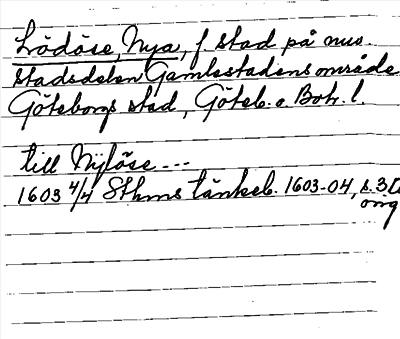 Lödöse, Nya, f. stad på nuv.
stadsdelen Gamlestadens område
Göteborgs stad, Göteb. o. Boh. l.
till Nylöse ---
1603 4/4 Sthms tänkeb. 1603-04, s. 3
orig